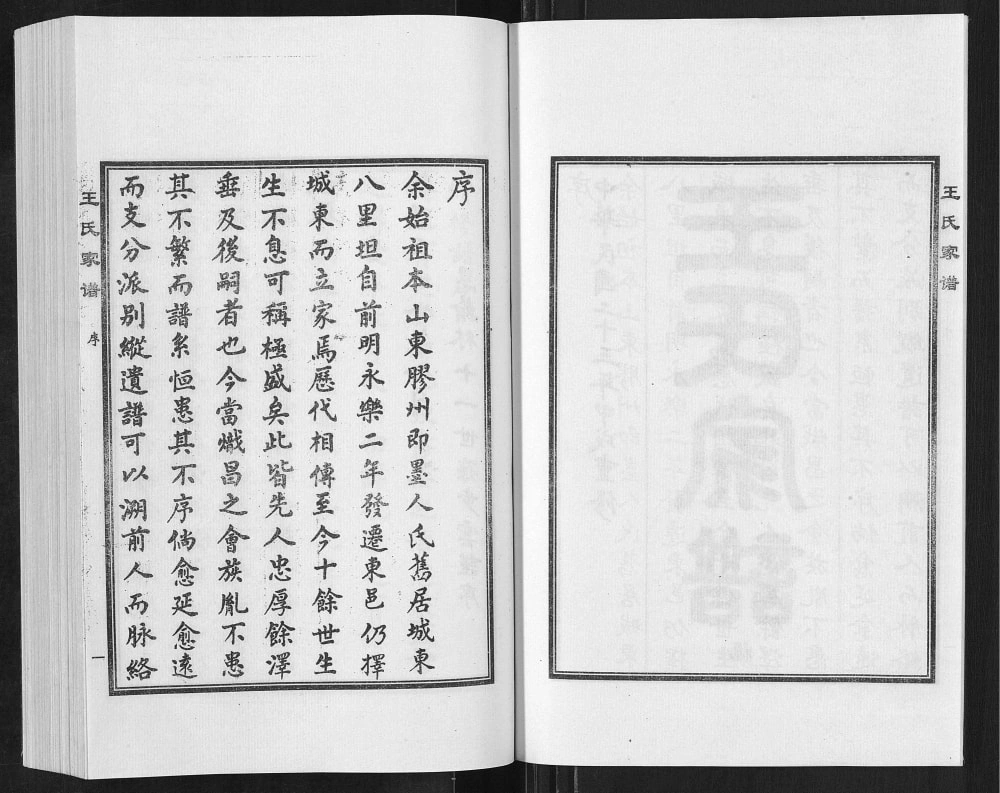 王氏家谱
序
余始祖本山東膠州即墨人氏舊居城東
八里坦自前明永樂二年發遷東邑仍擇
城東而立家焉歷代相傳至今十餘世生
生不息可稱極盛矣此皆先人忠厚餘澤
垂及後嗣者也今當熾昌之會族胤不患
其不繁而譜系恒患其不序倘愈延愈遠
而支分派別縱遺譜可以溯前人而脉絡
王氏家谱
序
一